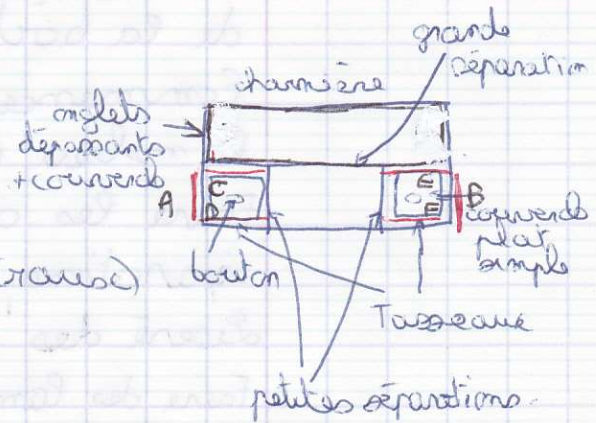 grande
séparation
charnière
onglets
dépassants
+couvercle
A
C
D
E
E
B
couvercle
plat
simple
bouton
Tasseaux
petites séparations.